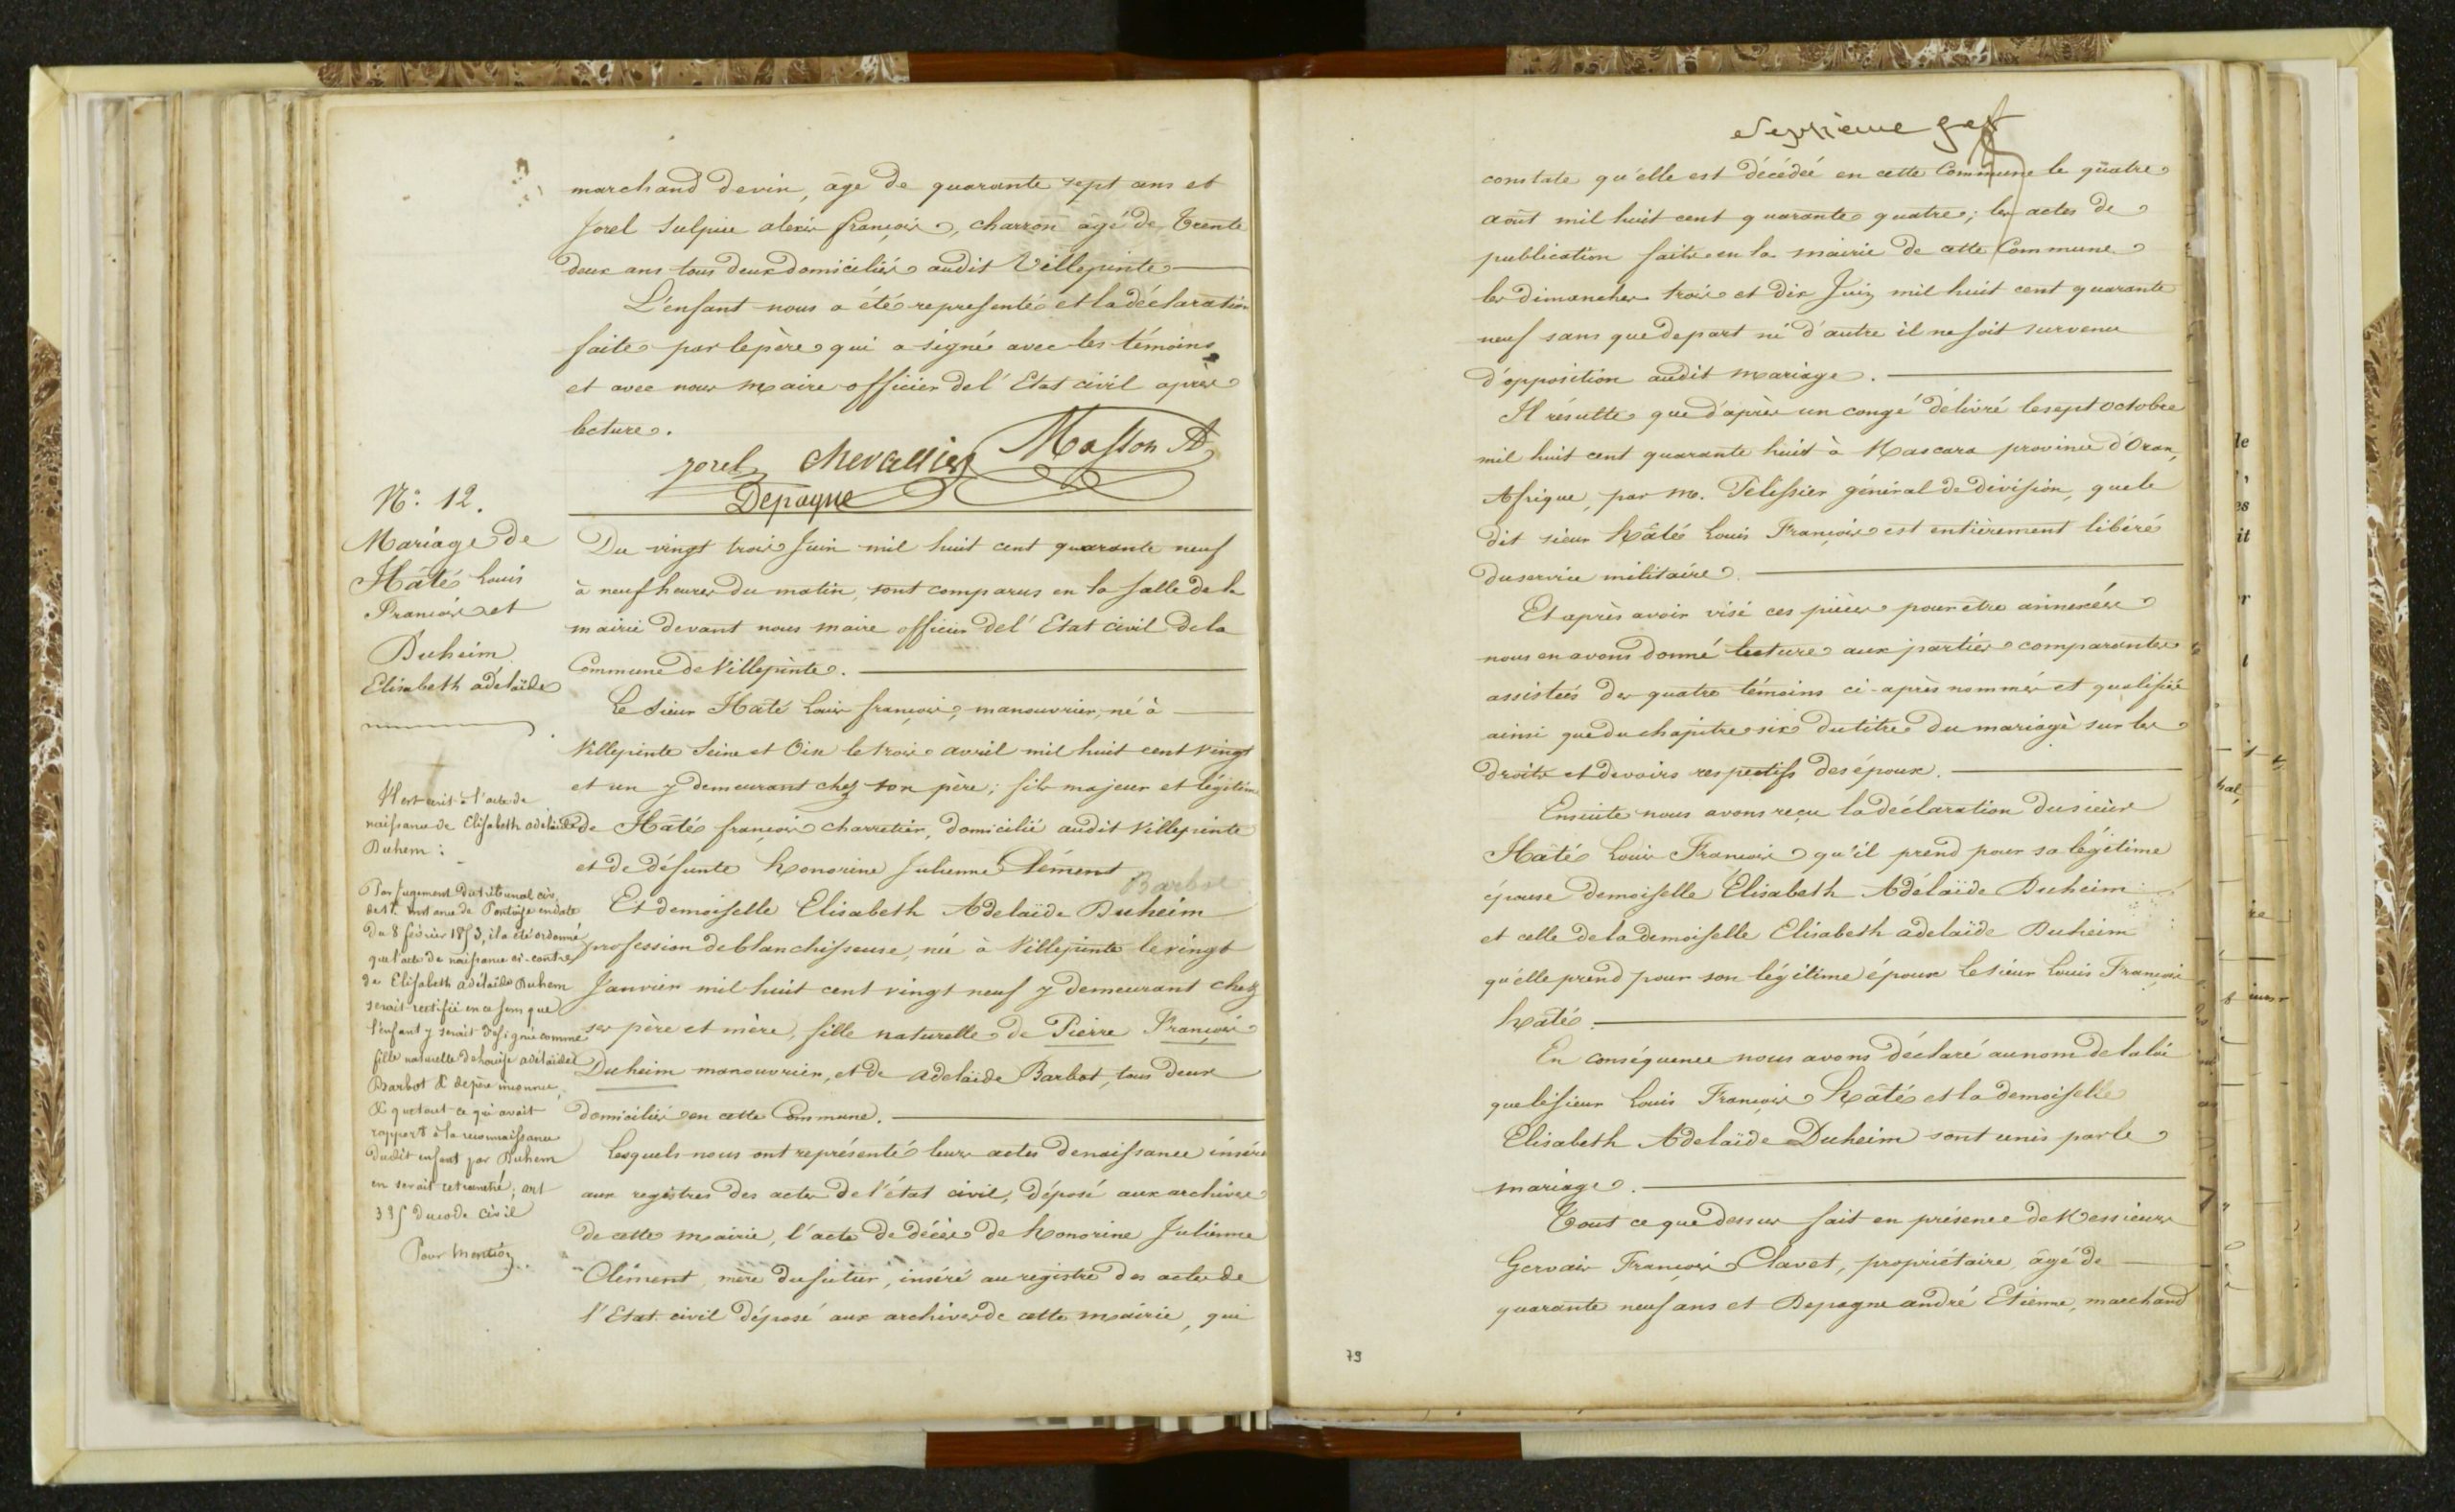 marchand de vin, âgé de quarante sept ans et
Jorel Sulpice alexis françois, charron âgé de Trente
deux ans tous deux domiciliés audit Villepinte
L'enfant nous a été representé et la déclaration
faite par le père qui a signé avec les témoins
et avec nous maire officier de l'Etat civil après
lecture.
jorel chevallier Masson A
Depagne
N.º 12.
Mariage de
Hâté Louis
François et
Duheim
Elisabeth adelaïde
Il est écrit à l'acte de
naissance de Elisabeth adelaïde
Duhem :
Par Jugement du tribunal civ.
de 1re instance de Pontoise en date
du 8 février 1853, il a été ordonné
que l'acte de naissance ci-contre
de Elisabeth adélaïde Duhem
serait rectifié en ce sens que
l'enfant y serait désigné comme
fille naturelle de Louise adélaïde
Barbot & de père inconnu,
& que tout ce qui avait
rapport à la reconnaissance
dudit enfant par Duhem
en serait retranché; art
335 du code civil
Pour Mention
Du vingt trois Juin mil huit cent quarante neuf
à neuf heures du matin, sont comparus en la salle de la
mairie devant nous maire officier de l'Etat civil de la
Commune de Villepinte.
Le Sieur Hâté Louis françois, manouvrier, né à
Villepinte Seine et Oise le trois avril mil huit cent vingt
et un y demeurant chez son père; fils majeur et légitime
de Hâté françois charretier, domicilié audit Villepinte
et de défunte honorine Julienne Clément
Barbot
Et demoiselle Elisabeth Adelaïde Duheim
profession de blanchisseuse, née à Villepinte le vingt
Janvier mil huit cent vingt neuf y demeurant chez
ses père et mère, fille naturelle de Pierre François
Duheim manouvrier, et de adelaïde Barbot, tous deux
domiciliés en cette Commune.
Lesquels nous ont représenté leurs actes de naissance insérés
aux registres des actes de l'état civil, déposé aux archives
de cette mairie, l'acte de décès de honorine Julienne
Clément, mère du futur, inséré au registre des actes de
l'Etat civil déposé aux archives de cette mairie, qui
constate qu'elle est décédée en cette Commune le quatre
août mil huit cent quarante quatre; les actes de
publication faits en la mairie de cette Commune
les dimanches trois et dix Juin mil huit cent quarante
neuf sans que de part ni d'autre il ne soit survenu
d'opposition audit mariage.
Il résulte que d'après un congé délivré le sept octobre
mil huit cent quarante huit à Mascara province d'Oran,
Afrique, par M. Pélissier général de division, que le
dit sieur hâté Louis François est entièrement libéré
du service militaire.
Et après avoir visé ces pièces pour être annexées
nous en avons donné lecture aux parties comparantes
assistées des quatre témoins ci-après nommés et qualifiés
ainsi que du chapitre six du titre du mariage sur les
droits et devoirs respectifs des époux.
Ensuite nous avons reçu la déclaration du sieur
Hâté Louis François qu'il prend pour sa légitime
épouse demoiselle Elisabeth Adélaïde Duheim
et celle de la demoiselle Elisabeth adelaïde Duheim
qu'elle prend pour son légitime époux le sieur Louis François
hâté.
En conséquence nous avons déclaré au nom de la loi
que le sieur Louis François hâté et la demoiselle
Elisabeth Adelaïde Duheim sont unis par le
mariage.
Tout ce que dessus fait en présence de Messieurs
Gervais François Clavet, propriétaire, âgé de
quarante neuf ans et Depagne andré Etienne, marchand
79